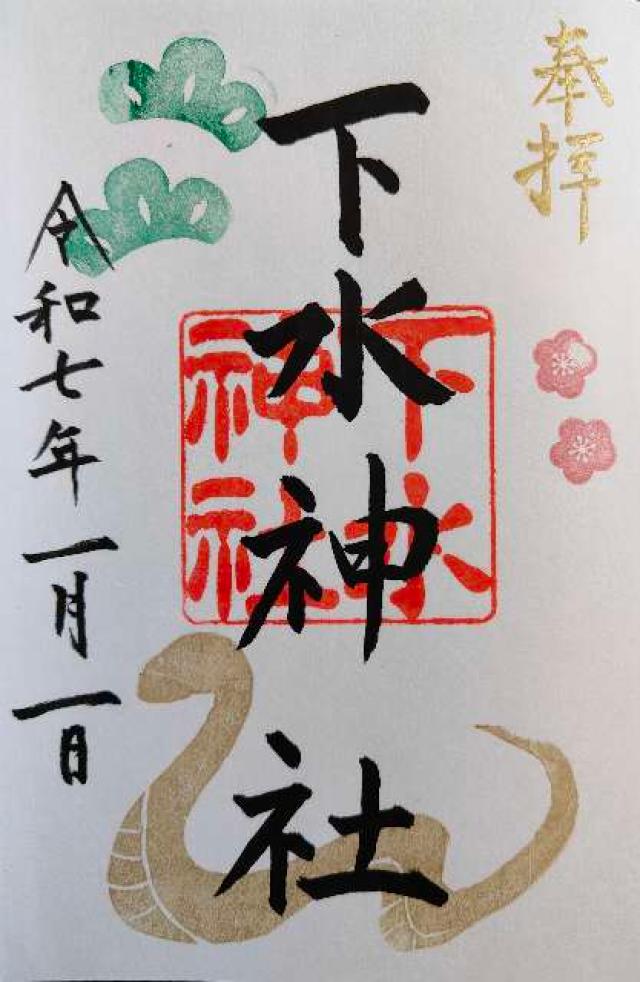 奉拝
下水神社
下水
神社
令和七年一月一日